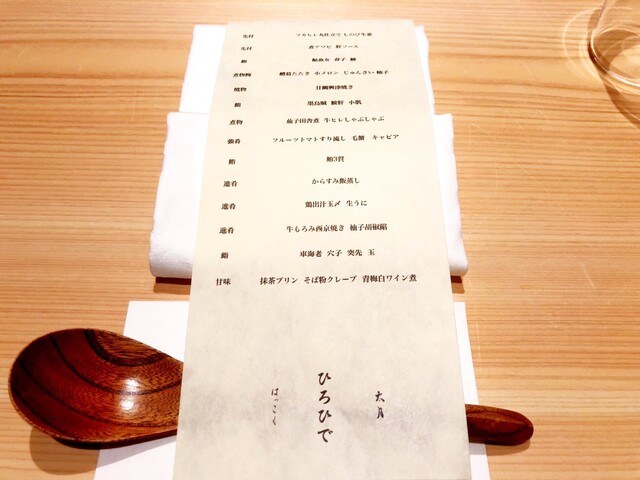 先付 フカヒレ丸仕立て しのび生姜
先付 煮アワビ 肝ソース
鮨 春子
煮物椀 小メロン じゅんさい 柚子
焼物 甘鯛興津焼き
鮨 墨烏賊 鮟肝 小肌
煮物 茄子田舎煮 牛ヒレしゃぶしゃぶ
強肴 フルーツトマトすり流し 毛蟹 キャビア
鮨 鮪3貫
進肴 からすみ飯蒸し
進肴 鶏出汁玉〆 生うに
進肴 牛もろみ西京焼き 柚子胡椒餡
鮨 車海老 穴子 奕先 玉
甘味 抹茶プリン そば粉クレープ 青梅白ワイン煮
ひろひで
はっこく